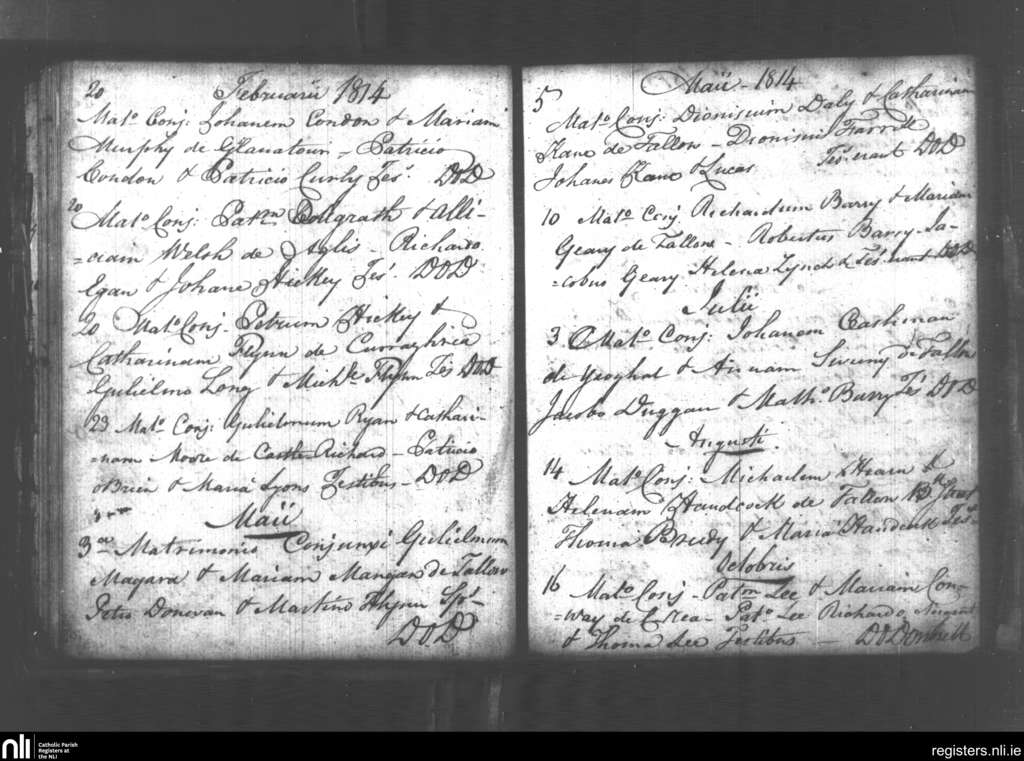 20 Februarii 1814
Mat:o Conj: Johanem Condon & Mariam
Murphy de Glanatoun - Patricio
Condon & Patricio Curly Tes: DOD
20 Mat:o Conj: Patm Colgrath & Alli-
=ciam Welsh de Aglis - Richardo
Egan & Johane Hickey Tes: DOD
20 Mato Conj - Petrum Hickey &
Catharinam Flynn de Curraghrea
Gulielmo Long & Michle Flynn Tes DOD
23 Mato Conj: Gulielmum Ryan & Cathari-
=nam Moore de Castle Richard - Patricio
oBrien & Maria Lyons Testibus - DOD
Maii
3a Matrimonio Conjunxi Gulielmum
Magara & Mariam Mangan de Tallow
Petro Donevan & Martino Flynn Sps-
DOD
Maii - 1814
5 Mato Conj: Dionisium Daly & Catharinam
Kane de Tallow - Dionisius Farrell
Johanes Kane & Lucas Tes: erant DOD
10 Mato Conj Richardum Barry & Mariam
Geary de Tallow - Robertus Barry Ja-
=cobus Geary Helena Lynch & Tes: erant DOD
Julii
3 Mato Conj: Johanem Cashman
de Yeoghal & Annam Sweeny de Tallow
Jacobo Duggan & Matho Barry Ts DOD
Augusti
14 Mato Conj: Michaelem Ahearn &
Helenam Handcock de Tallow
Thoma Brudy & Maria Handcock Tes:
Octobris
16 Mato Conj - Patm Lee & Mariam Con-
=way de - Pato Lee Richardo Nugent
& Thoma Lee Testibus - DODonnell
nli Catholic Parish
Registers at
the NLI
registers.nli.ie